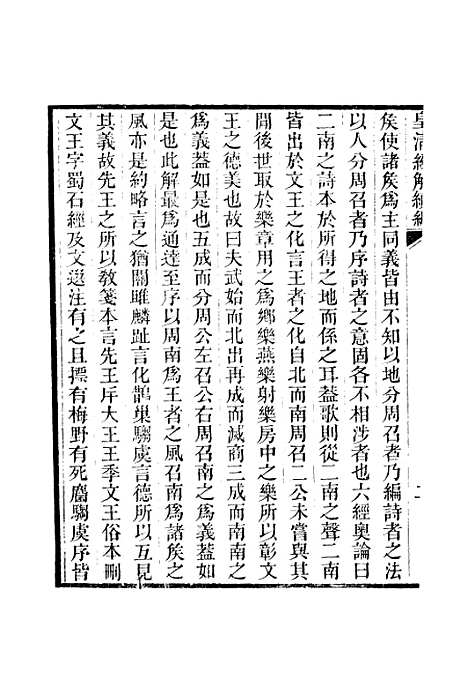 皇清經解續編
矦使諸矦爲主同義皆由不知以地分周召者乃編詩者之法
以人分周召者乃序詩者之意固各不相涉者也六經奧論曰
二南之詩本於所得之地而係之耳葢歌則從二南之聲二南
皆出於文王之化言王者之化自北而南周召二公未嘗與其
閒後世取於樂章用之爲鄉樂燕樂射樂房中之樂所以彰文
王之德美也故曰夫武始而北出再成而滅商三成而南南之
爲義葢如是也五成而分周公左召公右周召南之爲義葢如
是也此解最爲通達至序以周南爲王者之風召南爲諸矦之
風亦是約略言之猶關雎麟趾言化鵲巢騶虞言德所以互見
其義故先王之所以敎箋本言先王斥大王王季文王俗本刪
文王字蜀石經及文選注有之且摽有梅野有死麕騶虞序皆